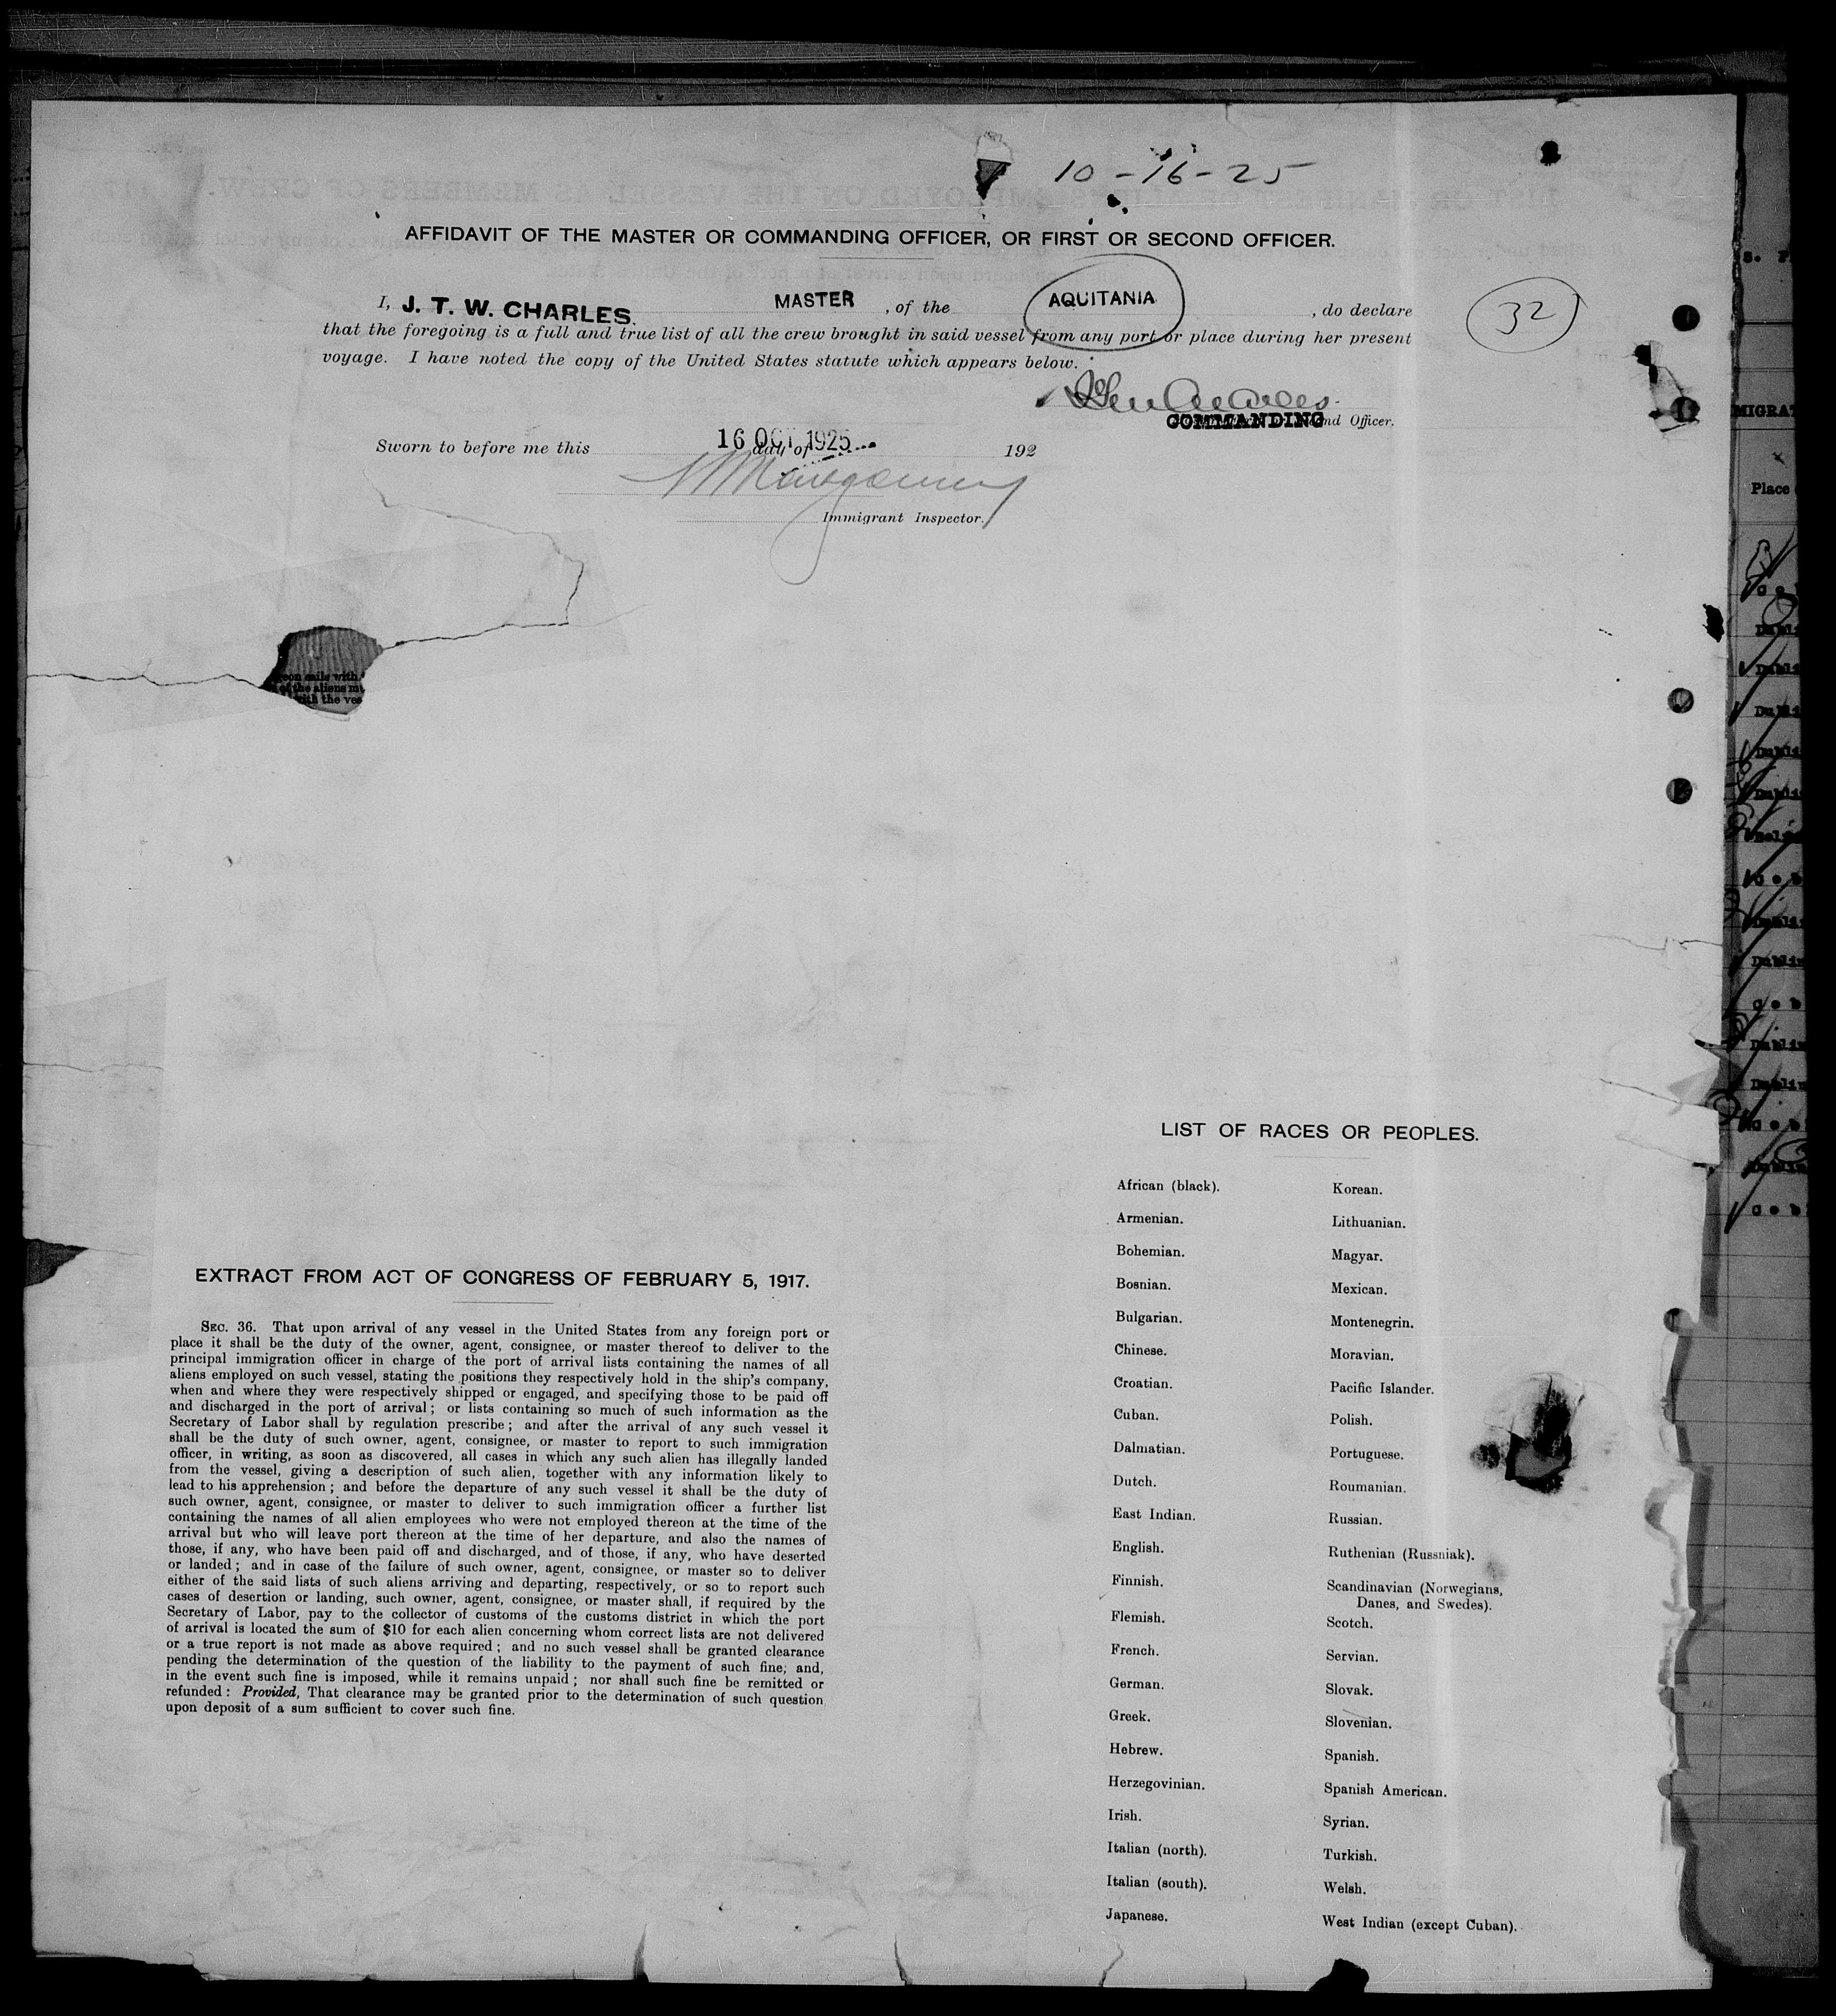 10-16-25
AFFIDAVIT OF THE MASTER OR COMMANDING OFFICER, OR FIRST OR SECOND OFFICER.
I, J. T. W. CHARLES. MASTER, of the AQUITANIA, do declare
32
that the foregoing is a full and true list of all the crew brought in said vessel from any port or place during her present
voyage. I have noted the copy of the United States statute which appears below.
COMMANDING Officer.
Sworn to before me this 16 OCT 1925 day of 192
Immigrant Inspector.
LIST OF RACES OR PEOPLES.
African (black).
Armenian.
Bohemian.
Bosnian.
Bulgarian.
Chinese.
Croatian.
Cuban.
Dalmatian.
Dutch.
East Indian.
English.
Finnish.
Flemish.
French.
German.
Greek.
Hebrew.
Herzegovinian.
Irish.
Italian (north).
Italian (south).
Japanese.
Korean.
Lithuanian.
Magyar.
Mexican.
Montenegrin.
Moravian.
Pacific Islander.
Polish.
Portuguese.
Roumanian.
Russian.
Ruthenian (Russniak).
Scandinavian (Norwegians,
Danes, and Swedes).
Scotch.
Servian.
Slovak.
Slovenian.
Spanish.
Spanish American.
Syrian.
Turkish.
Welsh.
West Indian (except Cuban).
EXTRACT FROM ACT OF CONGRESS OF FEBRUARY 5, 1917.
SEC. 36. That upon arrival of any vessel in the United States from any foreign port or
place it shall be the duty of the owner, agent, consignee, or master thereof to deliver to the
principal immigration officer in charge of the port of arrival lists containing the names of all
aliens employed on such vessel, stating the positions they respectively hold in the ship's company,
when and where they were respectively shipped or engaged, and specifying those to be paid off
and discharged in the port of arrival; or lists containing so much of such information as the
Secretary of Labor shall by regulation prescribe; and after the arrival of any such vessel it
shall be the duty of such owner, agent, consignee, or master to report to such immigration
officer, in writing, as soon as discovered, all cases in which any such alien has illegally landed
from the vessel, giving a description of such alien, together with any information likely to
lead to his apprehension; and before the departure of any such vessel it shall be the duty of
such owner, agent, consignee, or master to deliver to such immigration officer a further list
containing the names of all alien employees who were not employed thereon at the time of the
arrival but who will leave port thereon at the time of her departure, and also the names of
those, if any, who have been paid off and discharged, and of those, if any, who have deserted
or landed; and in case of the failure of such owner, agent, consignee, or master so to deliver
either of the said lists of such aliens arriving and departing, respectively, or so to report such
cases of desertion or landing, such owner, agent, consignee, or master shall, if required by the
Secretary of Labor, pay to the collector of customs of the customs district in which the port
of arrival is located the sum of $10 for each alien concerning whom correct lists are not delivered
or a true report is not made as above required; and no such vessel shall be granted clearance
pending the determination of the question of the liability to the payment of such fine; and,
in the event such fine is imposed, while it remains unpaid; nor shall such fine be remitted or
refunded: Provided, That clearance may be granted prior to the determination of such question
upon deposit of a sum sufficient to cover such fine.